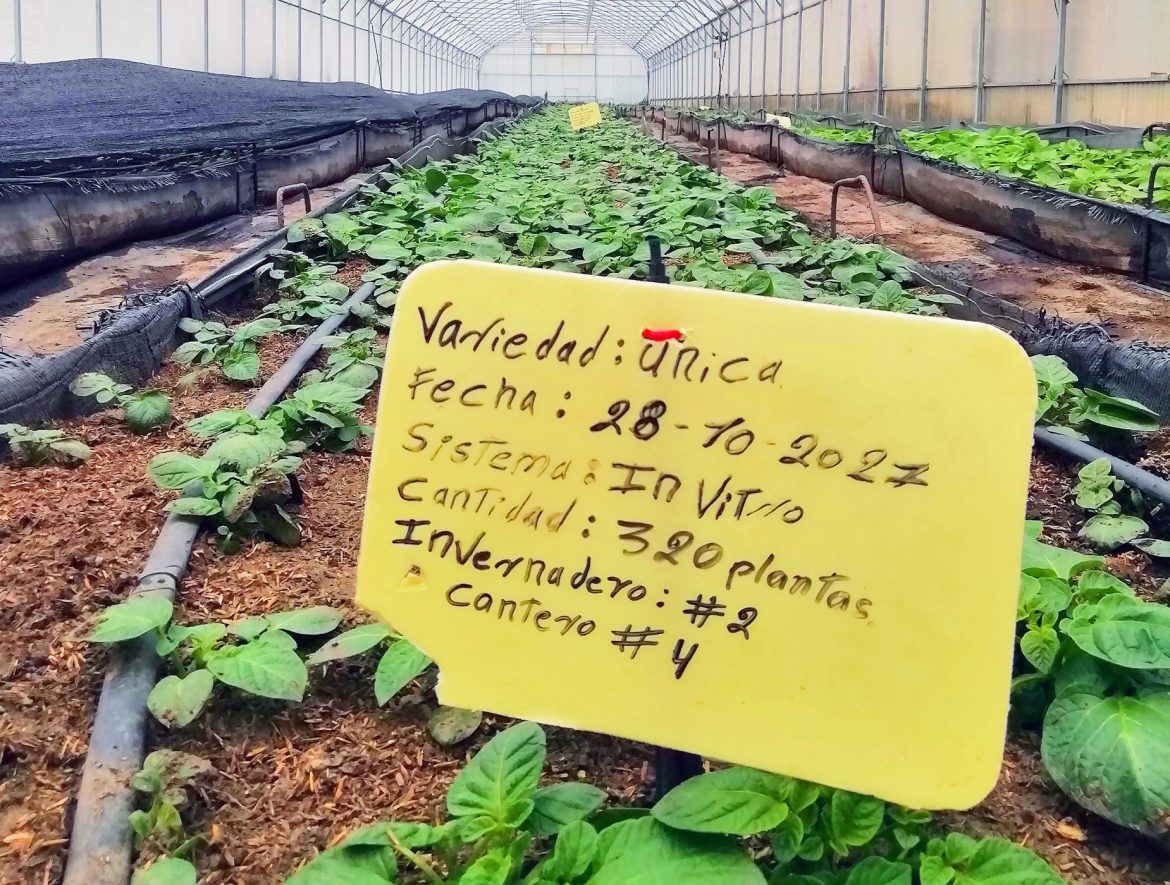 Variedad: Única
Fecha: 28-10-2027
Sistema: In Vitro
Cantidad: 320 plantas
Invernadero: #2
Cantero #4